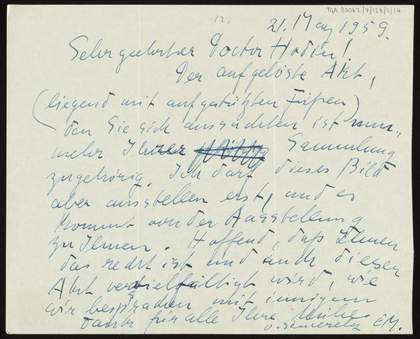 21. May 1959.
Sehr geehrter Doctor Hodin!,
Der aufgelöste Akt,
(liegend mit aufgestützten Füßen)
den Sie sich aussuchten ist nun-
mehr Ihrer Sammlung
zugehörig. Ich darf dieses Bild
aber ausstellen erst, und es
kommt von der Ausstellung
zu Ihnen. Hoffend, daß Ihnen
das recht ist und auch dieser
Akt vervielfältigt wird, wie
wir besprachen mit innigem
Dank für alle Ihre Mühe
EM.